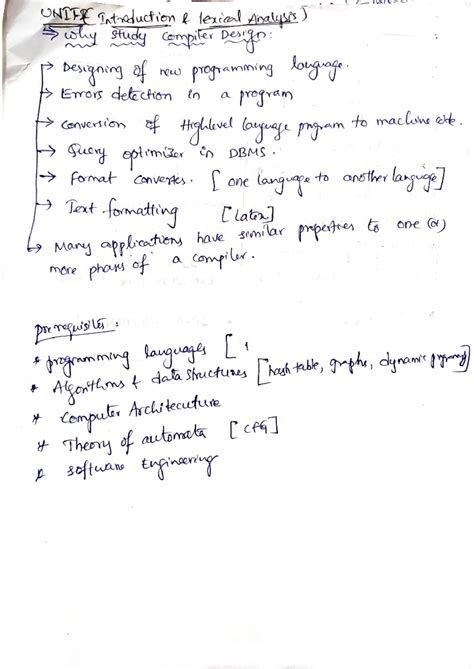 UNIT-I [Introduction & Lexical Analysis)
⇒ Why study Compiler Design:
→ Designing of new programming language.
→ Errors detection in a program
→ Conversion of Highlevel language program to machine code.
→ Query optimizer in DBMS.
→ Format Convertes. [one language to another language]
→ Text formatting [Latex]
→ Many applications have similar properties to one (or)
more phases of a compiler.
prerequisites:
* programming languages [
* Algorithms & data structures [hash table, graphs, dynamic programming]
* Computer Architecuture
* Theory of automata [CFG]
* software Engineering